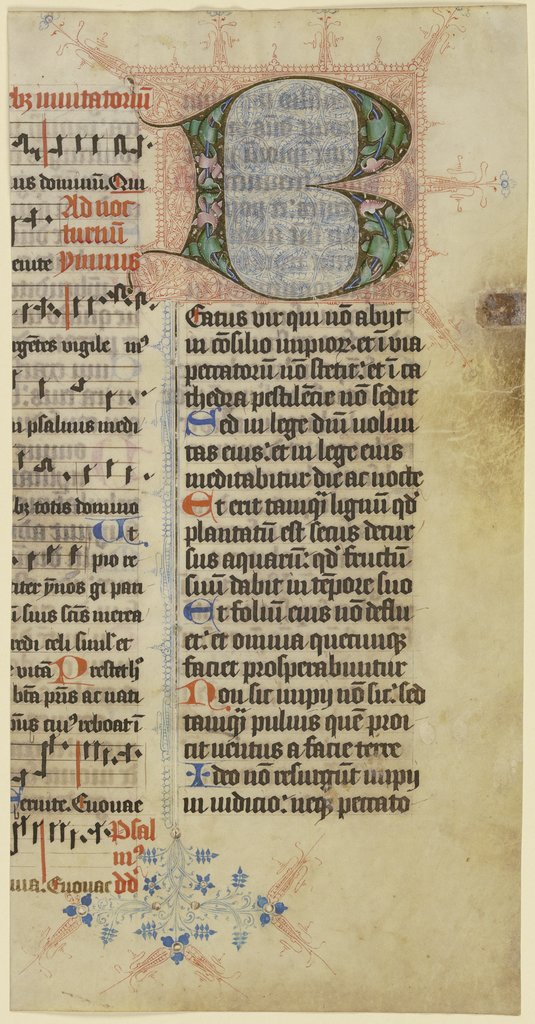 bz inuitatoriū
us dominū. Qui
Ad noc
turnū
enite ymnus
rgētes vigile mꝰ
n psalmis medi
bz totis domino
Ut
pio re
iter ymnos gi pari
ī suis sctis merea
redi celi simul et
vitā Prestet hꝰ
bīa pris ac nati
pūs cuiꝰ reboat ī
enite. Euouae
Psal
mꝰ
uia. Euouae dd
Beatus vir qui nō abijt
in cōsilio impior. et ī via
peccatorū nō stetit: et ī ca
thedra pestilētie nō sedit
Sed in lege dnī volun
tas eius: et in lege eius
meditabitur die ac nocte
Et erit tamqͣ lignū qd
plantatū est secus decur
sus aquarū: qd fructū
suū dabit in tēpore suo
Et foliū eius nō deflu
et: et omnia quecunqꝫ
faciet prosperabuntur
Non sic impij nō sic: sed
tamqͣ puluis quē proi
cit uentus a facie terre
Ideo nō resurgūt impij
in iudicio: neqꝫ peccato